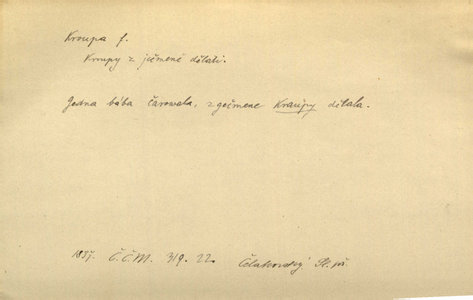 Kroupa f.
Kroupy z ječmene dělati.
Jedna bába čarowala, z gečmene Kraupy dělala.
1837. Č.Č.M. 319. 22. Čelakovský Sl. př.